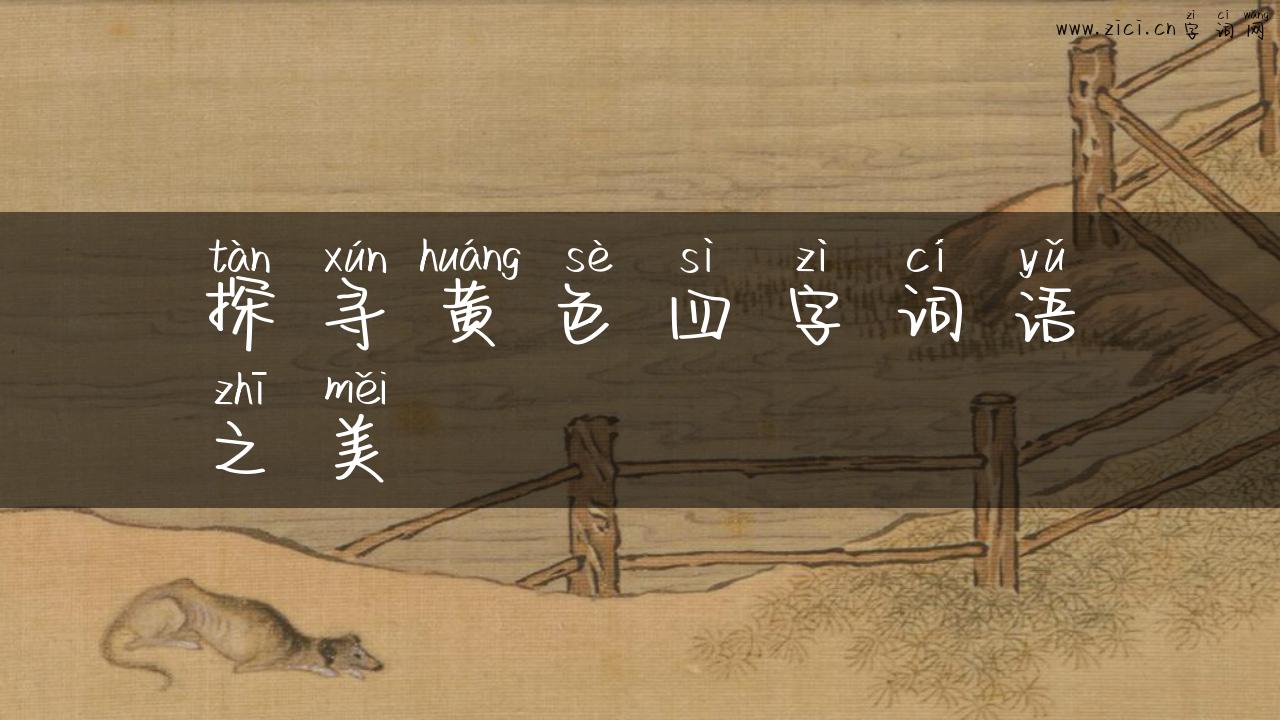 zì cí wǎng
www.zici.cn 字词网
tàn xún huáng sè sì zì cí yǔ
探寻黄色四字词语
zhī měi
之美